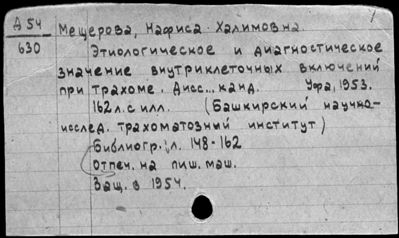 Д 54
630
Мещерова, Нафиса Халимовна
Этиологическое и диагностическое
значение внутриклеточных включений
при трахоме. Дисс... канд. Уфа, 1953.
162 л. с илл. (Башкирский научно-
исслед. трахоматозный институт)
Библиогр.: л. 148-162
Отпеч. на пиш. маш.
Защ. в 1954.